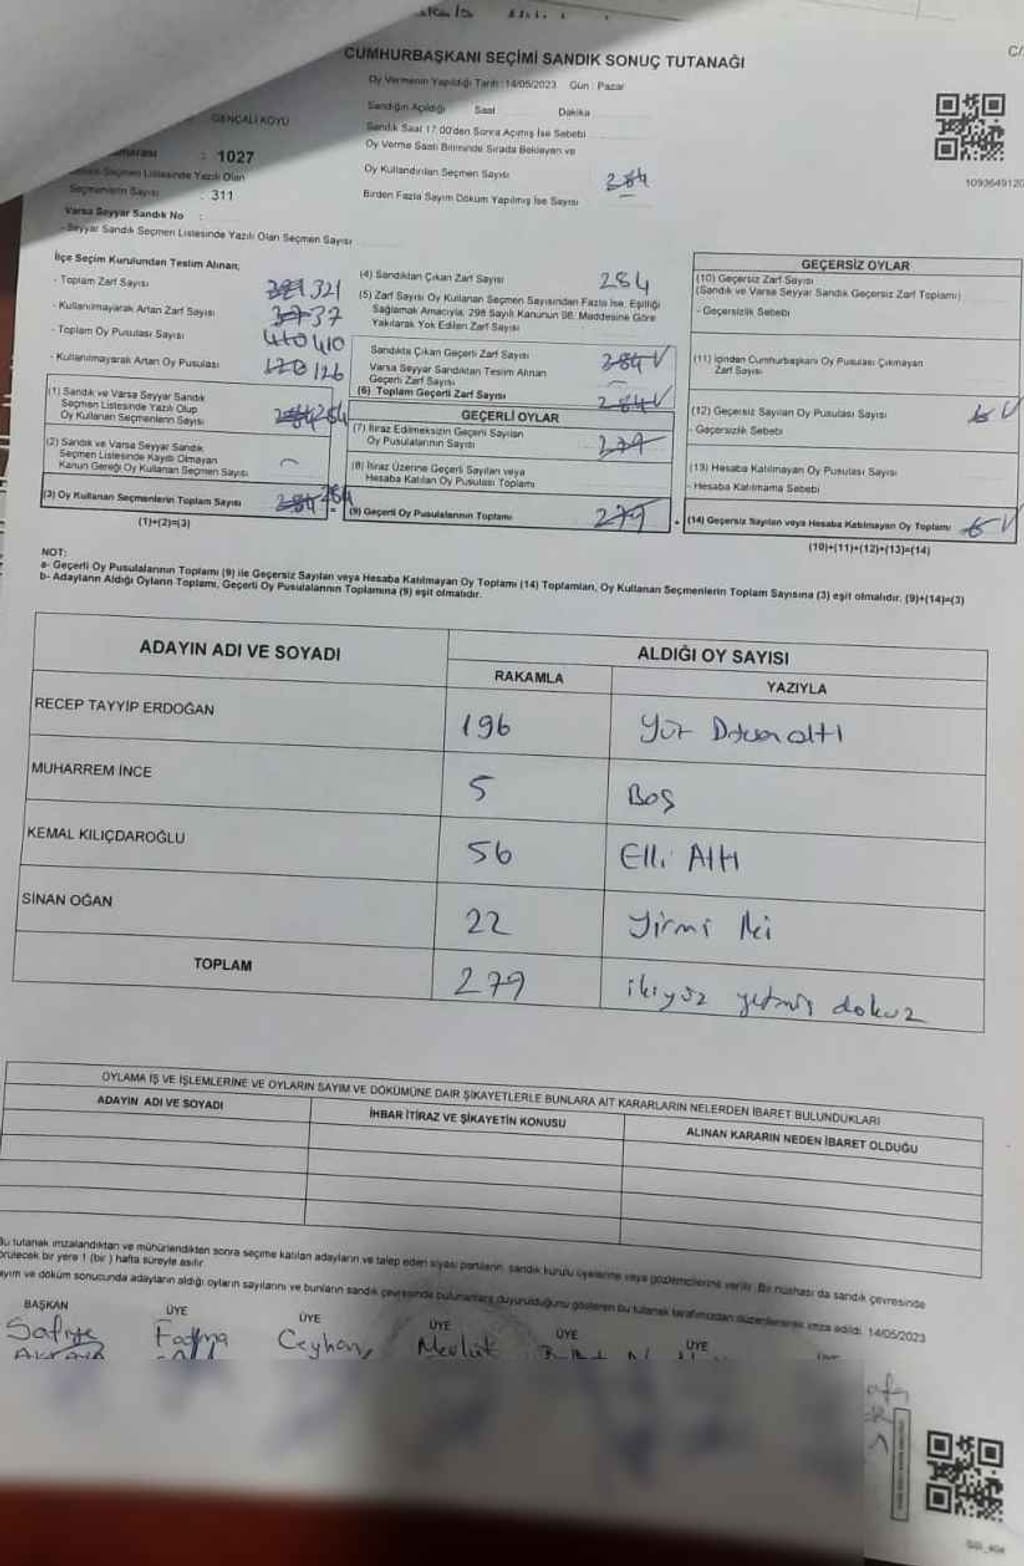 CUMHURBAŞKANI SEÇİMİ SANDIK SONUÇ TUTANAĞI
C/
Oy Vermenin Yapıldığı Tarih : 14/05/2023 Gün : Pazar
GENÇALİ KÖYÜ
Sandığın Açıldığı Saat Dakika
Sandık Saat 17:00'den Sonra Açılmış İse Sebebi
: 1027
Oy Verme Saati Bitiminde Sırada Bekleyen ve
Oy Kullandırılan Seçmen Sayısı 284
Seçmen Listesinde Yazılı Olan
Seçmenlerin Sayısı : 311
Birden Fazla Sayım Döküm Yapılmış İse Sayısı
1093649120
Varsa Seyyar Sandık No :
- Seyyar Sandık Seçmen Listesinde Yazılı Olan Seçmen Sayısı
İlçe Seçim Kurulundan Teslim Alınan;
- Toplam Zarf Sayısı 321
- Kullanılmayarak Artan Zarf Sayısı 37 37
- Toplam Oy Pusulası Sayısı 410 410
- Kullanılmayarak Artan Oy Pusulası 120 126
(1) Sandık ve Varsa Seyyar Sandık
Seçmen Listesinde Yazılı Olup
Oy Kullanan Seçmenlerin Sayısı 284 284
(2) Sandık ve Varsa Seyyar Sandık
Seçmen Listesinde Kayıtlı Olmayan
Kanun Gereği Oy Kullanan Seçmen Sayısı –
(3) Oy Kullanan Seçmenlerin Toplam Sayısı 284 284
(1)+(2)=(3)
(4) Sandıktan Çıkan Zarf Sayısı 284
(5) Zarf Sayısı Oy Kullanan Seçmen Sayısından Fazla İse, Eşitliği
Sağlamak Amacıyla, 298 Sayılı Kanunun 98. Maddesine Göre
Yakılarak Yok Edilen Zarf Sayısı
Sandıkta Çıkan Geçerli Zarf Sayısı 284
Varsa Seyyar Sandıktan Teslim Alınan
Geçerli Zarf Sayısı –
(6) Toplam Geçerli Zarf Sayısı 284
GEÇERLİ OYLAR
(7) İtiraz Edilmeksizin Geçerli Sayılan
Oy Pusulalarının Sayısı 279
(8) İtiraz Üzerine Geçerli Sayılan veya
Hesaba Katılan Oy Pusulası Toplamı
(9) Geçerli Oy Pusulalarının Toplamı 279
GEÇERSİZ OYLAR
(10) Geçersiz Zarf Sayısı
(Sandık ve Varsa Seyyar Sandık Geçersiz Zarf Toplamı)
- Geçersizlik Sebebi
(11) İçinden Cumhurbaşkanı Oy Pusulası Çıkmayan
Zarf Sayısı
(12) Geçersiz Sayılan Oy Pusulası Sayısı
- Geçersizlik Sebebi
(13) Hesaba Katılmayan Oy Pusulası Sayısı
- Hesaba Katılmama Sebebi
(14) Geçersiz Sayılan veya Hesaba Katılmayan Oy Toplamı
(10)+(11)+(12)+(13)=(14)
NOT:
a- Geçerli Oy Pusulalarının Toplamı (9) ile Geçersiz Sayılan veya Hesaba Katılmayan Oy Toplamı (14) Toplamları, Oy Kullanan Seçmenlerin Toplam Sayısına (3) eşit olmalıdır. (9)+(14)=(3)
b- Adayların Aldığı Oyların Toplamı, Geçerli Oy Pusulalarının Toplamına (9) eşit olmalıdır.
ADAYIN ADI VE SOYADI
ALDIĞI OY SAYISI
RAKAMLA YAZIYLA
RECEP TAYYİP ERDOĞAN 196 Yüz Doksan altı
MUHARREM İNCE 5 Beş
KEMAL KILIÇDAROĞLU 56 Elli Altı
SİNAN OĞAN 22 Yirmi İki
TOPLAM 279 ikiyüz yetmiş dokuz
OYLAMA İŞ VE İŞLEMLERİNE VE OYLARIN SAYIM VE DÖKÜMÜNE DAİR ŞİKAYETLERLE BUNLARA AİT KARARLARIN NELERDEN İBARET BULUNDUKLARI
ADAYIN ADI VE SOYADI
İHBAR İTİRAZ VE ŞİKAYETİN KONUSU
ALINAN KARARIN NEDEN İBARET OLDUĞU
Bu tutanak imzalandıktan ve mühürlendikten sonra seçime katılan adayların ve talep eden siyasi partilerin, sandık kurulu üyelerine veya gözlemcilerine verilir. Bir nüshası da sandık çevresinde
görülecek bir yere 1 (bir ) hafta süreyle asılır.
Sayım ve döküm sonucunda adayların aldığı oyların sayılarını ve bunların sandık çevresinde bulunanlara duyurulduğunu gösteren bu tutanak tarafımızdan düzenlenerek imza edildi. 14/05/2023
BAŞKAN ÜYE ÜYE ÜYE ÜYE ÜYE
Safiye Fadıma Ceyhan Mevlüt